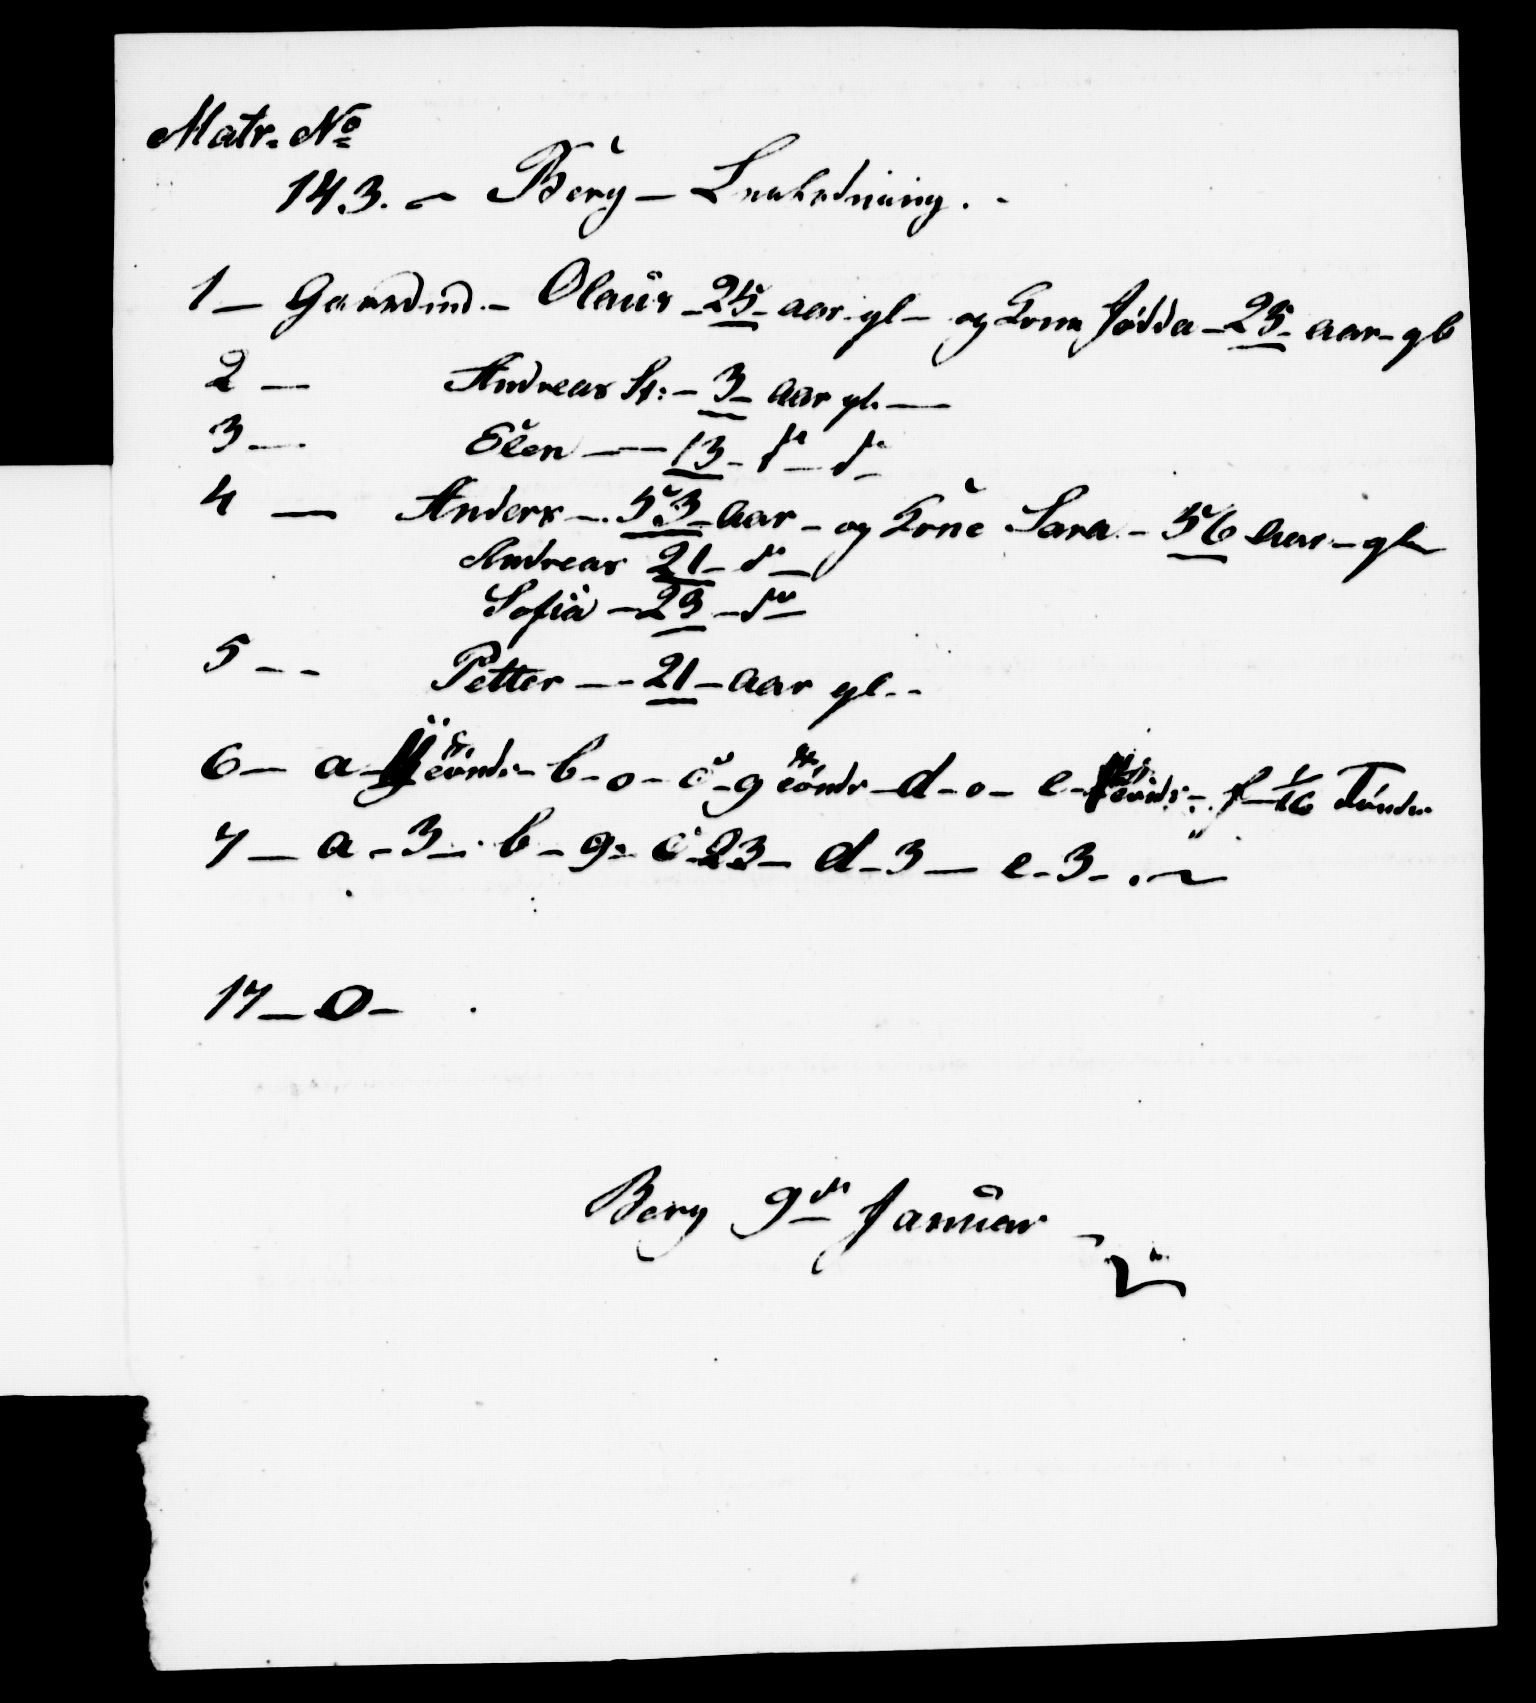 Matr. No
143. - Berg -
1 - Gaardmd. - Olaus - 25 - aar gl - og Kone Jødda - 25 - aar - gl
2 - Andreas - 3 - aar gl. -
3 - Elen - 13 - do - do
4 - Anders - 53 - aar - og Kone Sara - 56 aar - gl
Andreas 21 - do -
Sofia - 23 - do
5 - - Petter - 21 - aar gl. -
6 - a - b - o - c - 9 - d - o - e - f - 1/16 Tønde
7 - a - 3 - b - 9 - c 23 - d - 3 - e - 3 -
17 - O -
Berg 9de Januar